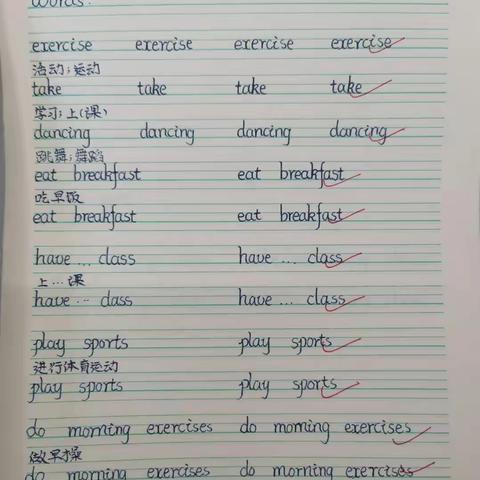 words:
exercise exercise exercise exercise
活动;运动
take take take take
学习;上(课)
dancing dancing dancing dancing
跳舞;舞蹈
eat breakfast eat breakfast
吃早饭
eat breakfast eat breakfast
have ... class have ... class
上…课
have ... class have ... class
play sports play sports
进行体育运动
play sports play sports
do morning exercises do morning exercises
做早操
do morning exercises do morning exercises